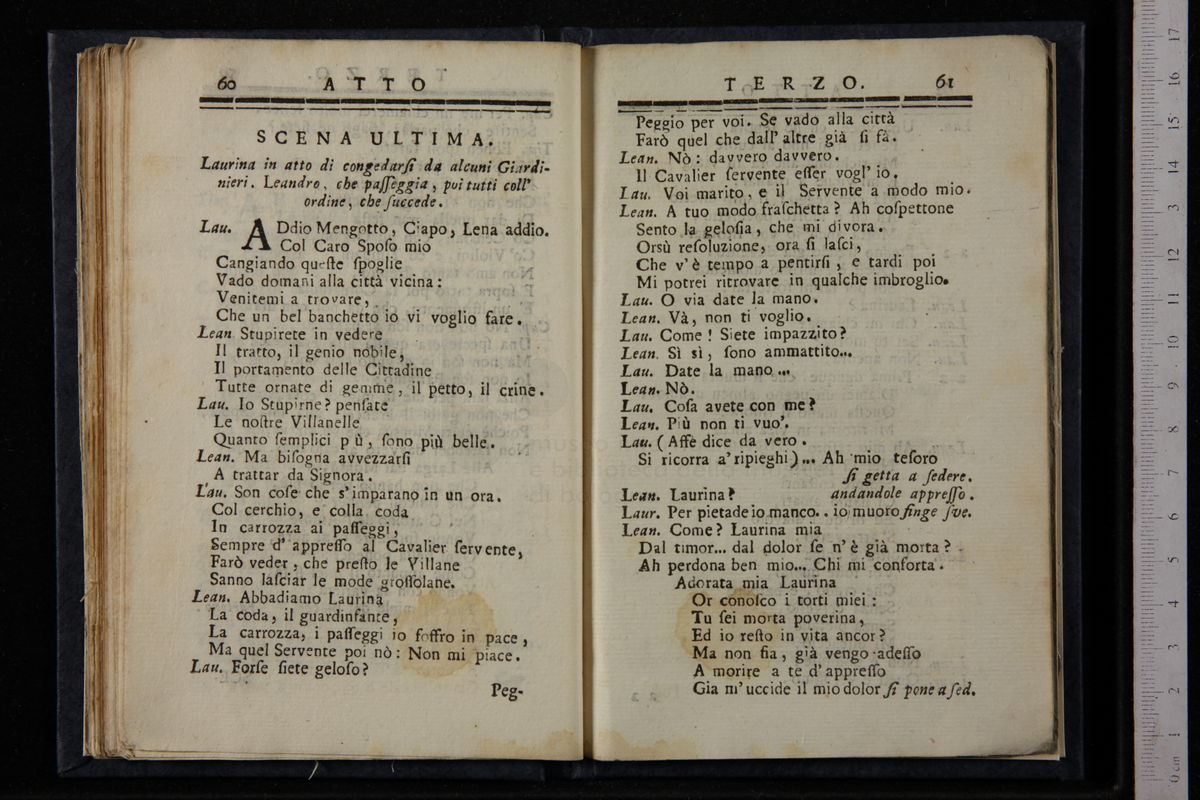 60 ATTO
SCENA ULTIMA.
Laurina in atto di congedarſi da alcuni Giardi-
nieri. Leandro, che paſſeggia, poi tutti coll'
ordine, che ſuccede.
Lau. ADdio Mengotto, Ciapo, Lena addio.
Col Caro Spoſo mio
Cangiando queſte ſpoglie
Vado domani alla città vicina:
Venitemi a trovare,
Che un bel banchetto io vi voglio fare.
Lean. Stupirete in vedere
Il tratto, il genio nobile,
Il portamento delle Cittadine
Tutte ornate di gemme, il petto, il crine.
Lau. Io Stupirne? penſate
Le noſtre Villanelle
Quanto ſemplici p ù, ſono più belle.
Lean. Ma biſogna avvezzarſi
A trattar da Signora.
Lau. Son coſe che s'imparano in un ora.
Col cerchio, e colla coda
In carrozza ai paſſeggi,
Sempre d'appreſſo al Cavalier ſervente,
Farò veder, che preſto le Villane
Sanno laſciar le mode groſſolane.
Lean. Abbadiamo Laurina
La coda, il guardinfante,
La carrozza, i paſſeggi io ſoffro in pace,
Ma quel Servente poi nò: Non mi piace.
Lau. Forſe ſiete geloſo?
Peg-
TERZO. 61
Peggio per voi. Se vado alla città
Farò quel che dall'altre già ſi fà.
Lean. Nò: davvero davvero.
Il Cavalier ſervente eſſer vogl'io.
Lau. Voi marito, e il Servente a modo mio.
Lean. A tuo modo fraſchetta? Ah coſpettone
Sento la geloſia, che mi divora.
Orsù reſoluzione, ora ſi laſci,
Che v'è tempo a pentirſi, e tardi poi
Mi potrei ritrovare in qualche imbroglio.
Lau. O via date la mano.
Lean. Và, non ti voglio.
Lau. Come! Siete impazzito?
Lean. Sì sì, ſono ammattito...
Lau. Date la mano...
Lean. Nò.
Lau. Coſa avete con me?
Lean. Più non ti vuo'.
Lau. (Affè dice da vero.
Si ricorra a'ripieghi)... Ah mio teſoro
ſi getta a ſedere.
Lean. Laurina? andandole appreſſo.
Laur. Per pietade io manco.. io muoro finge ſve.
Lean. Come? Laurina mia
Dal timor... dal dolor ſe n'è già morta?
Ah perdona ben mio... Chi mi conforta.
Adorata mia Laurina
Or conoſco i torti miei:
Tu ſei morta poverina,
Ed io reſto in vita ancor?
Ma non fia, già vengo adeſſo
A morire a te d'appreſſo
Gia m'uccide il mio dolor ſi pone a ſed.
0 cm 1 2 3 4 5 6 7 8 9 10 11 12 13 14 15 16 17